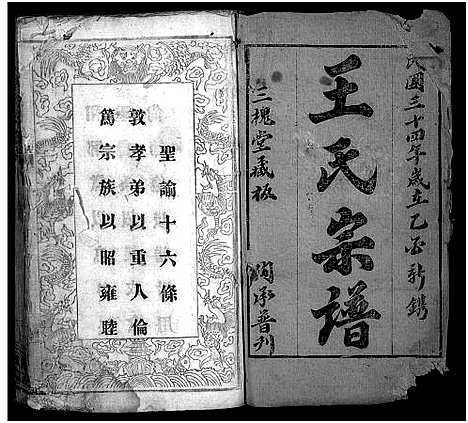 民國三十四年歲在乙酉新鐫
王氏宗譜
三槐堂藏板
聖諭十六條
敦孝弟以重人倫
篤宗族以昭雍睦